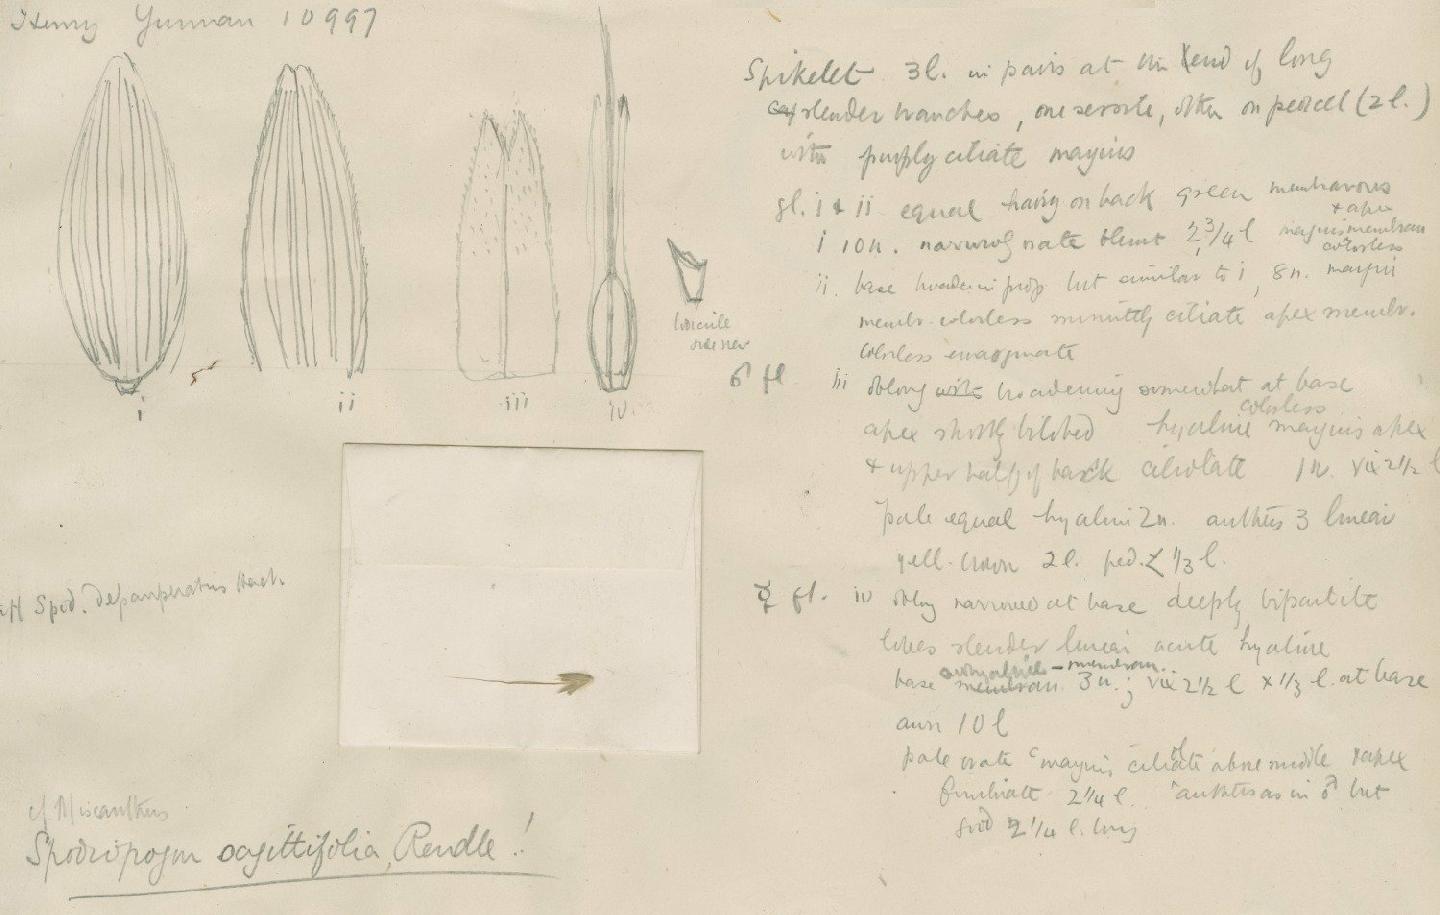 Henry Yunnan 10997
Spikelet 3l. in pairs at the end of long
slender branches, one sessile, other on pedicel (2 l.)
with purply ciliate margins
gl. i & ii equal hairy on back green membranous
& apex
i 10n. narrowly ovate blunt 2 3/4 l margins membran
colorless
ii. base broader in prop but similar to i, 8n. margin
membr. colorless minutely ciliate apex membr.
colorless emarginate
♂ fl. iii oblong with broadening somewhat at base
colorless
apex shortly bilobed hyaline margins apex
& upper half of back ciliolate 1n. vix 2 1/2 l
pale equal hyaline 2n. anthers 3 linear
yell. brown 2l. ped. < 1/3 l.
☿ fl. iv oblong narrowed at base deeply bipartite
lobes slender linear acute hyaline
base membran. 3n.; vix 2 1/2 l × 1/3 l. at base
membran.
awn 10 l
pale ovate margins ciliolate above middle & apex
fimbriate 2 1/4 l. anthers as in ♂ but
2 1/4 l. long
i
ii
iii
iv
lodicule
side view
aff Spod. depauperatus Hack.
cf Miscanthus
Spodiopogon sagittifolia, Rendle!